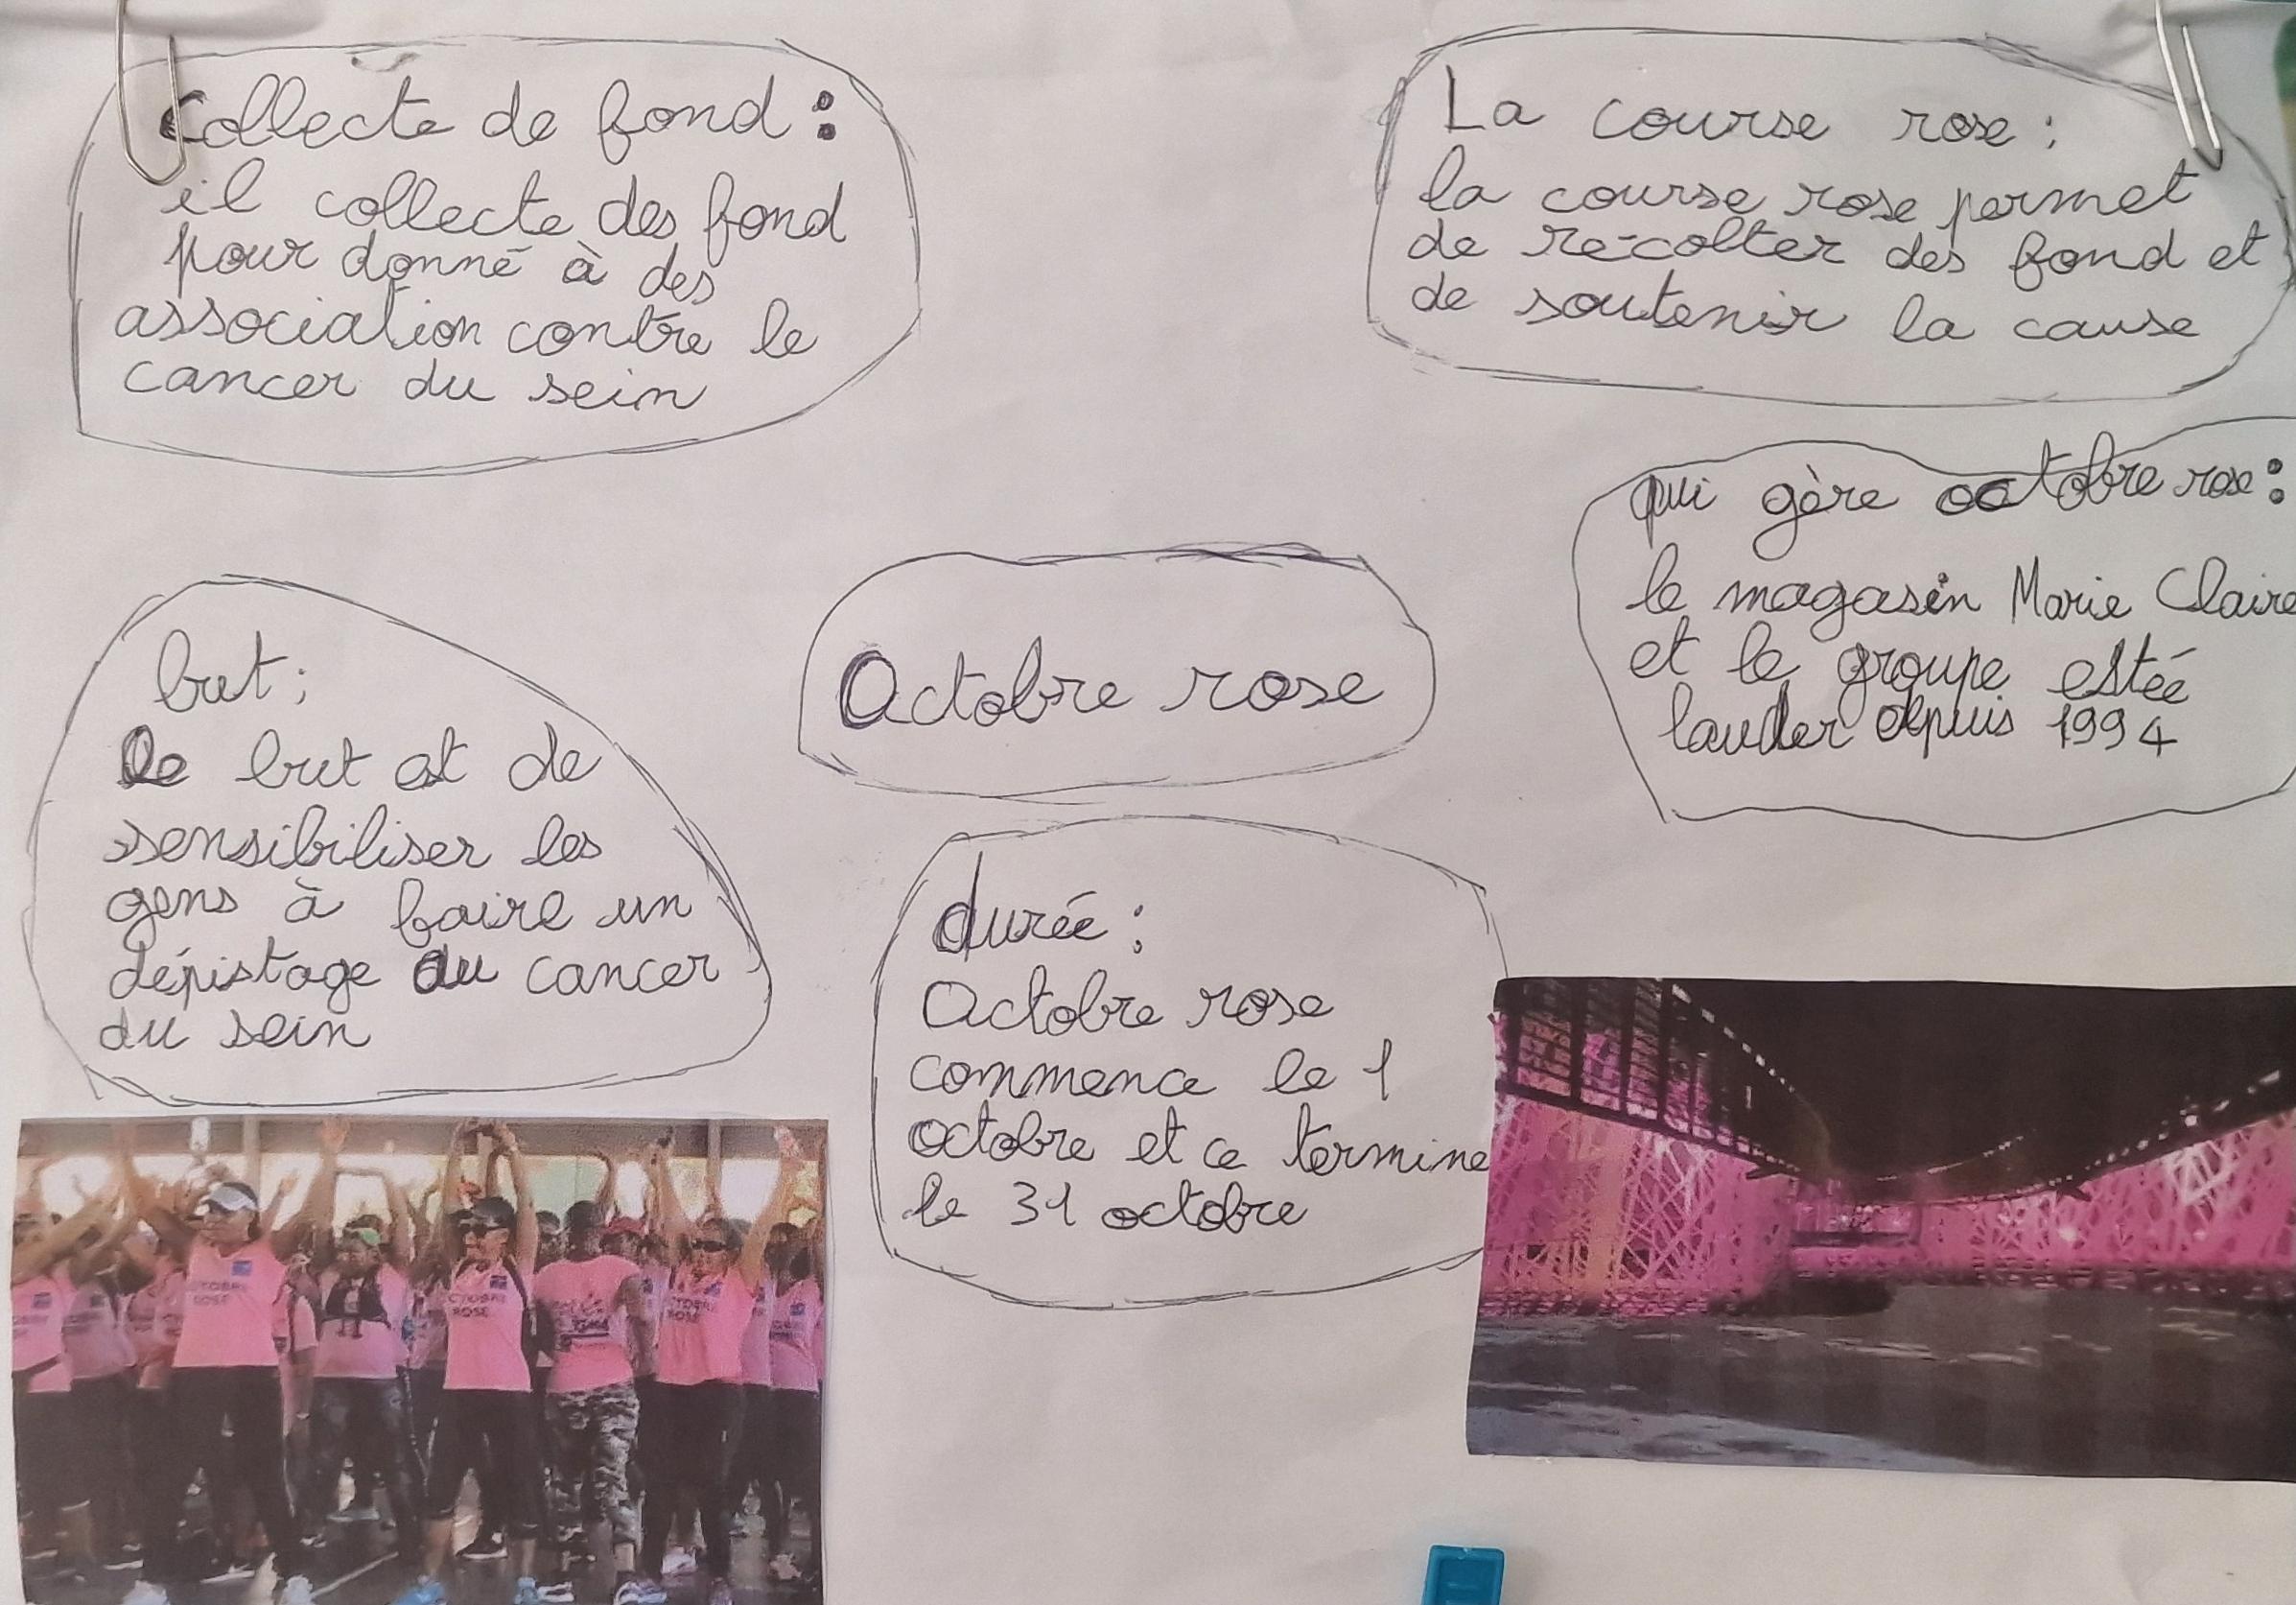 Collecte de fond :
il collecte des fond
pour donné à des
association contre le
cancer du sein
La course rose :
la course rose permet
de récolter des fond et
de soutenir la cause
qui gère octobre rose :
le magasin Marie Claire
et le groupe estéé
lauder depuis 1994
Octobre rose
but :
Le but est de
sensibiliser les
gens à faire un
dépistage du cancer
du sein
durée :
Octobre rose
commence le 1
octobre et ce termine
le 31 octobre
CTOBRE
ROSE
CTOBRE
ROSE
CTOBRE
ROSE